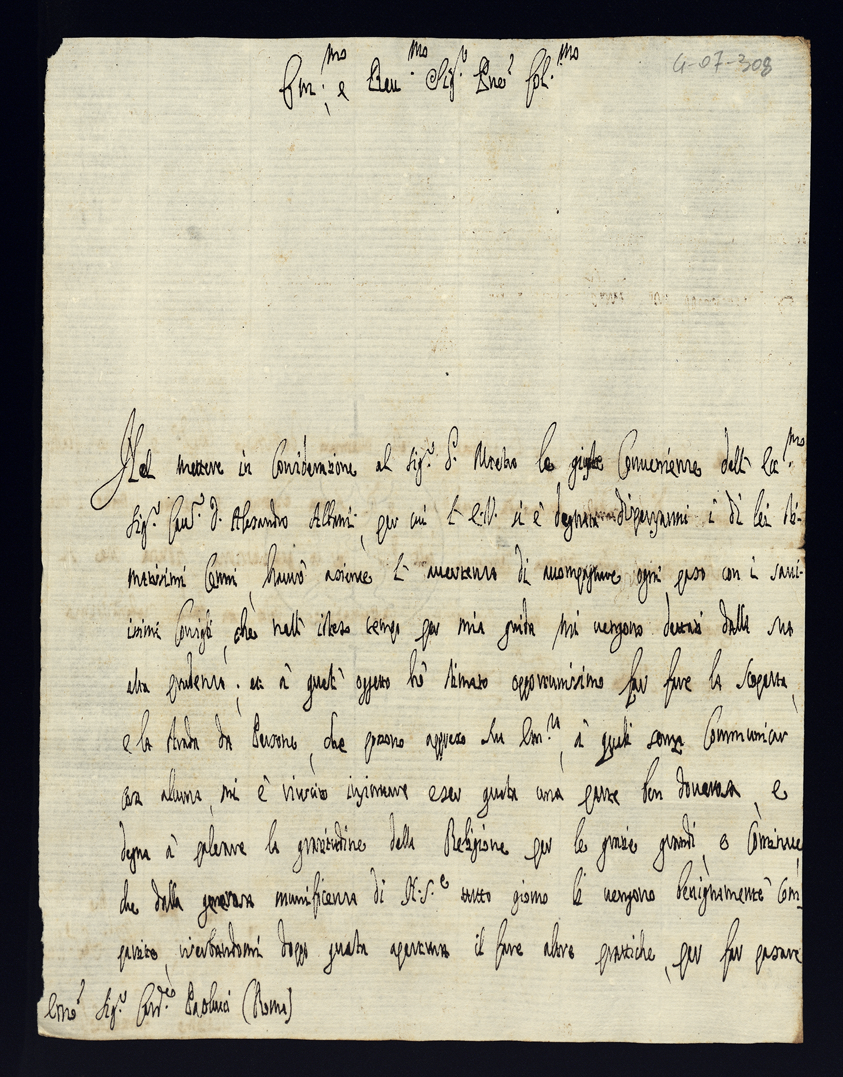 4-07-308
Em.mo e Reu.mo Sig.r Pne Col.mo
Nel mettere in Considerazione al Sig.r G. Mastro le giuste Convenienze dell' Ecc.mo
Sig.r Cau.r D. Alesandro Albani, per cui l' E.V. si è degnata dispenzarmi i di lei sti-
matissimi Cenni, hauró asieme l' auuertenza di accompagnare ogni paso con i saui-
issimi Consigli, che nell' isteso tempo per mia guida mi uengono dettati dalla sua
alta prudenza; et à quest' oggetto hó stimato opportunissimo far fare la scoperta,
e la strada da Persone, che posono appreso Su Em.za, à quali senza Communicar
cosa alcuna, mi è riuscito insinuare eser questa una parte ben douerosa, e
degna à palesare la gratitudine della Religione per le grazie grandi, e Continue,
che dalla generosa munificenza di N.S.e tutto giorno le uengono benignamente Com-
partite, riserbandomi doppo questa apertura il fare altre prattiche, per far pasare
Emo Sig.r Card.e Paolucci (Roma)